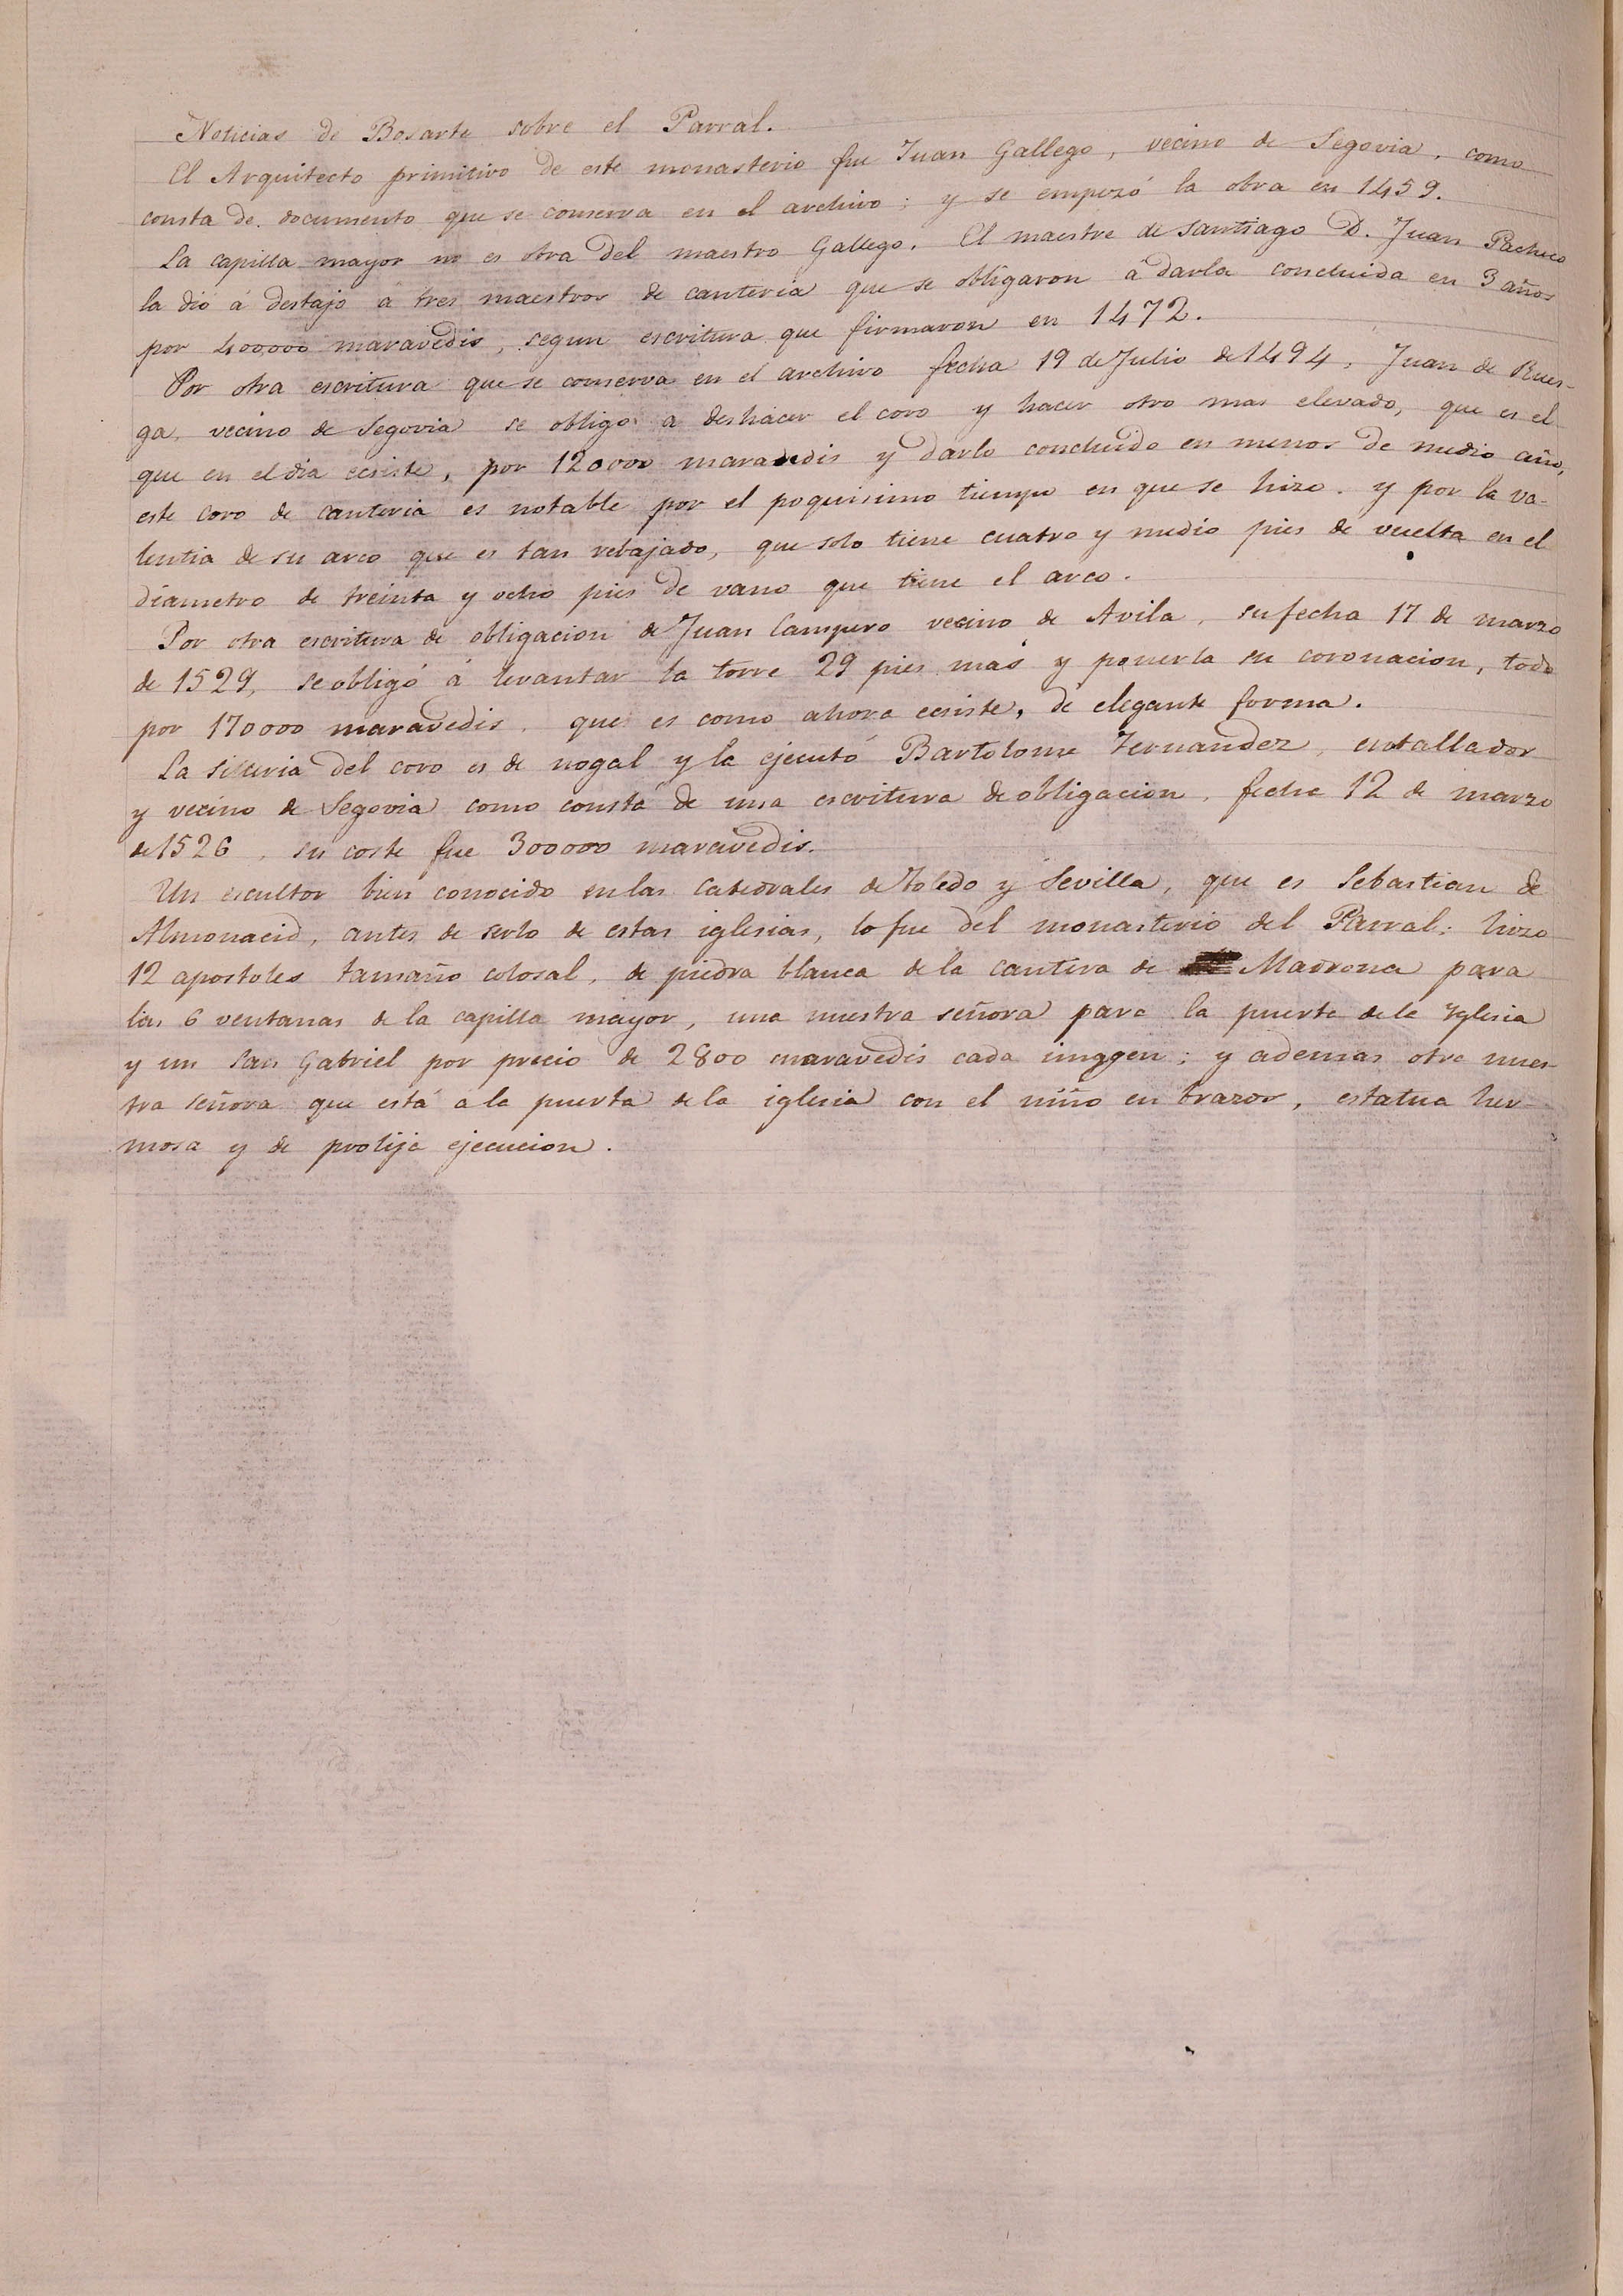 Noticias de Bosarte sobre el Parral.
El Arquitecto primitivo de este monasterio fue Juan Gallego, vecino de Segovia, como
consta de documento que se conserva en el archivo: y se empezó la obra en 1459.
La capilla mayor no es obra del maestro Gallego. El maestre de Santiago D. Juan Pacheco
la dió á destajo a tres maestros de canteria que se obligaron á darla concluida en 3 años
por 400,000 maravedis, segun escritura que firmaron en 1472.
Por otra escritura que se conserva en el archivo fecha 19 de Julio de 1494, Juan de Rues-
ga, vecino de Segovia se obligó a deshacer el coro y hacer otro mas elevado, que es el
que en el dia ecsiste, por 120000 maravedis y darlo concluido en menos de medio año,
este coro de canteria es notable por el poquisimo tiempo en que se hizo. y por la va-
lentia de su arco que es tan rebajado, que solo tiene cuatro y medio pies de vuelta en el
diametro de treinta y ocho pies de vano que tiene el arco.
Por otra escritura de obligacion de Juan Campero vecino de Avila, su fecha 17 de marzo
de 1529, se obligó á levantar la torre 29 pies mas y ponerla su coronacion, todo
por 170000 maravedis, que es como ahora ecsiste, de elegante forma.
La silleria del coro es de nogal y la ejecutó Bartolome Fernandez, entallador
y vecino de Segovia como consta de una escritura de obligacion, fecha 12 de marzo
de 1526, su coste fue 300000 maravedis.
Un escultor bien conocido en las Catedrales de Toledo y Sevilla, que es Sebastian de
Almonacid, antes de serlo de estas iglesias, lo fue del monasterio del Parral: hizo
12 apostoles tamaño colosal, de piedra blanca de la cantera de Madrona para
las 6 ventanas de la capilla mayor, una nuestra señora para la puerta de la Yglesia
y un San Gabriel por precio de 2800 maravedis cada imagen; y ademas otra nues-
tra señora que está a la puerta de la iglesia con el niño en brazos, estatua her-
mosa y de prolija ejecucion.